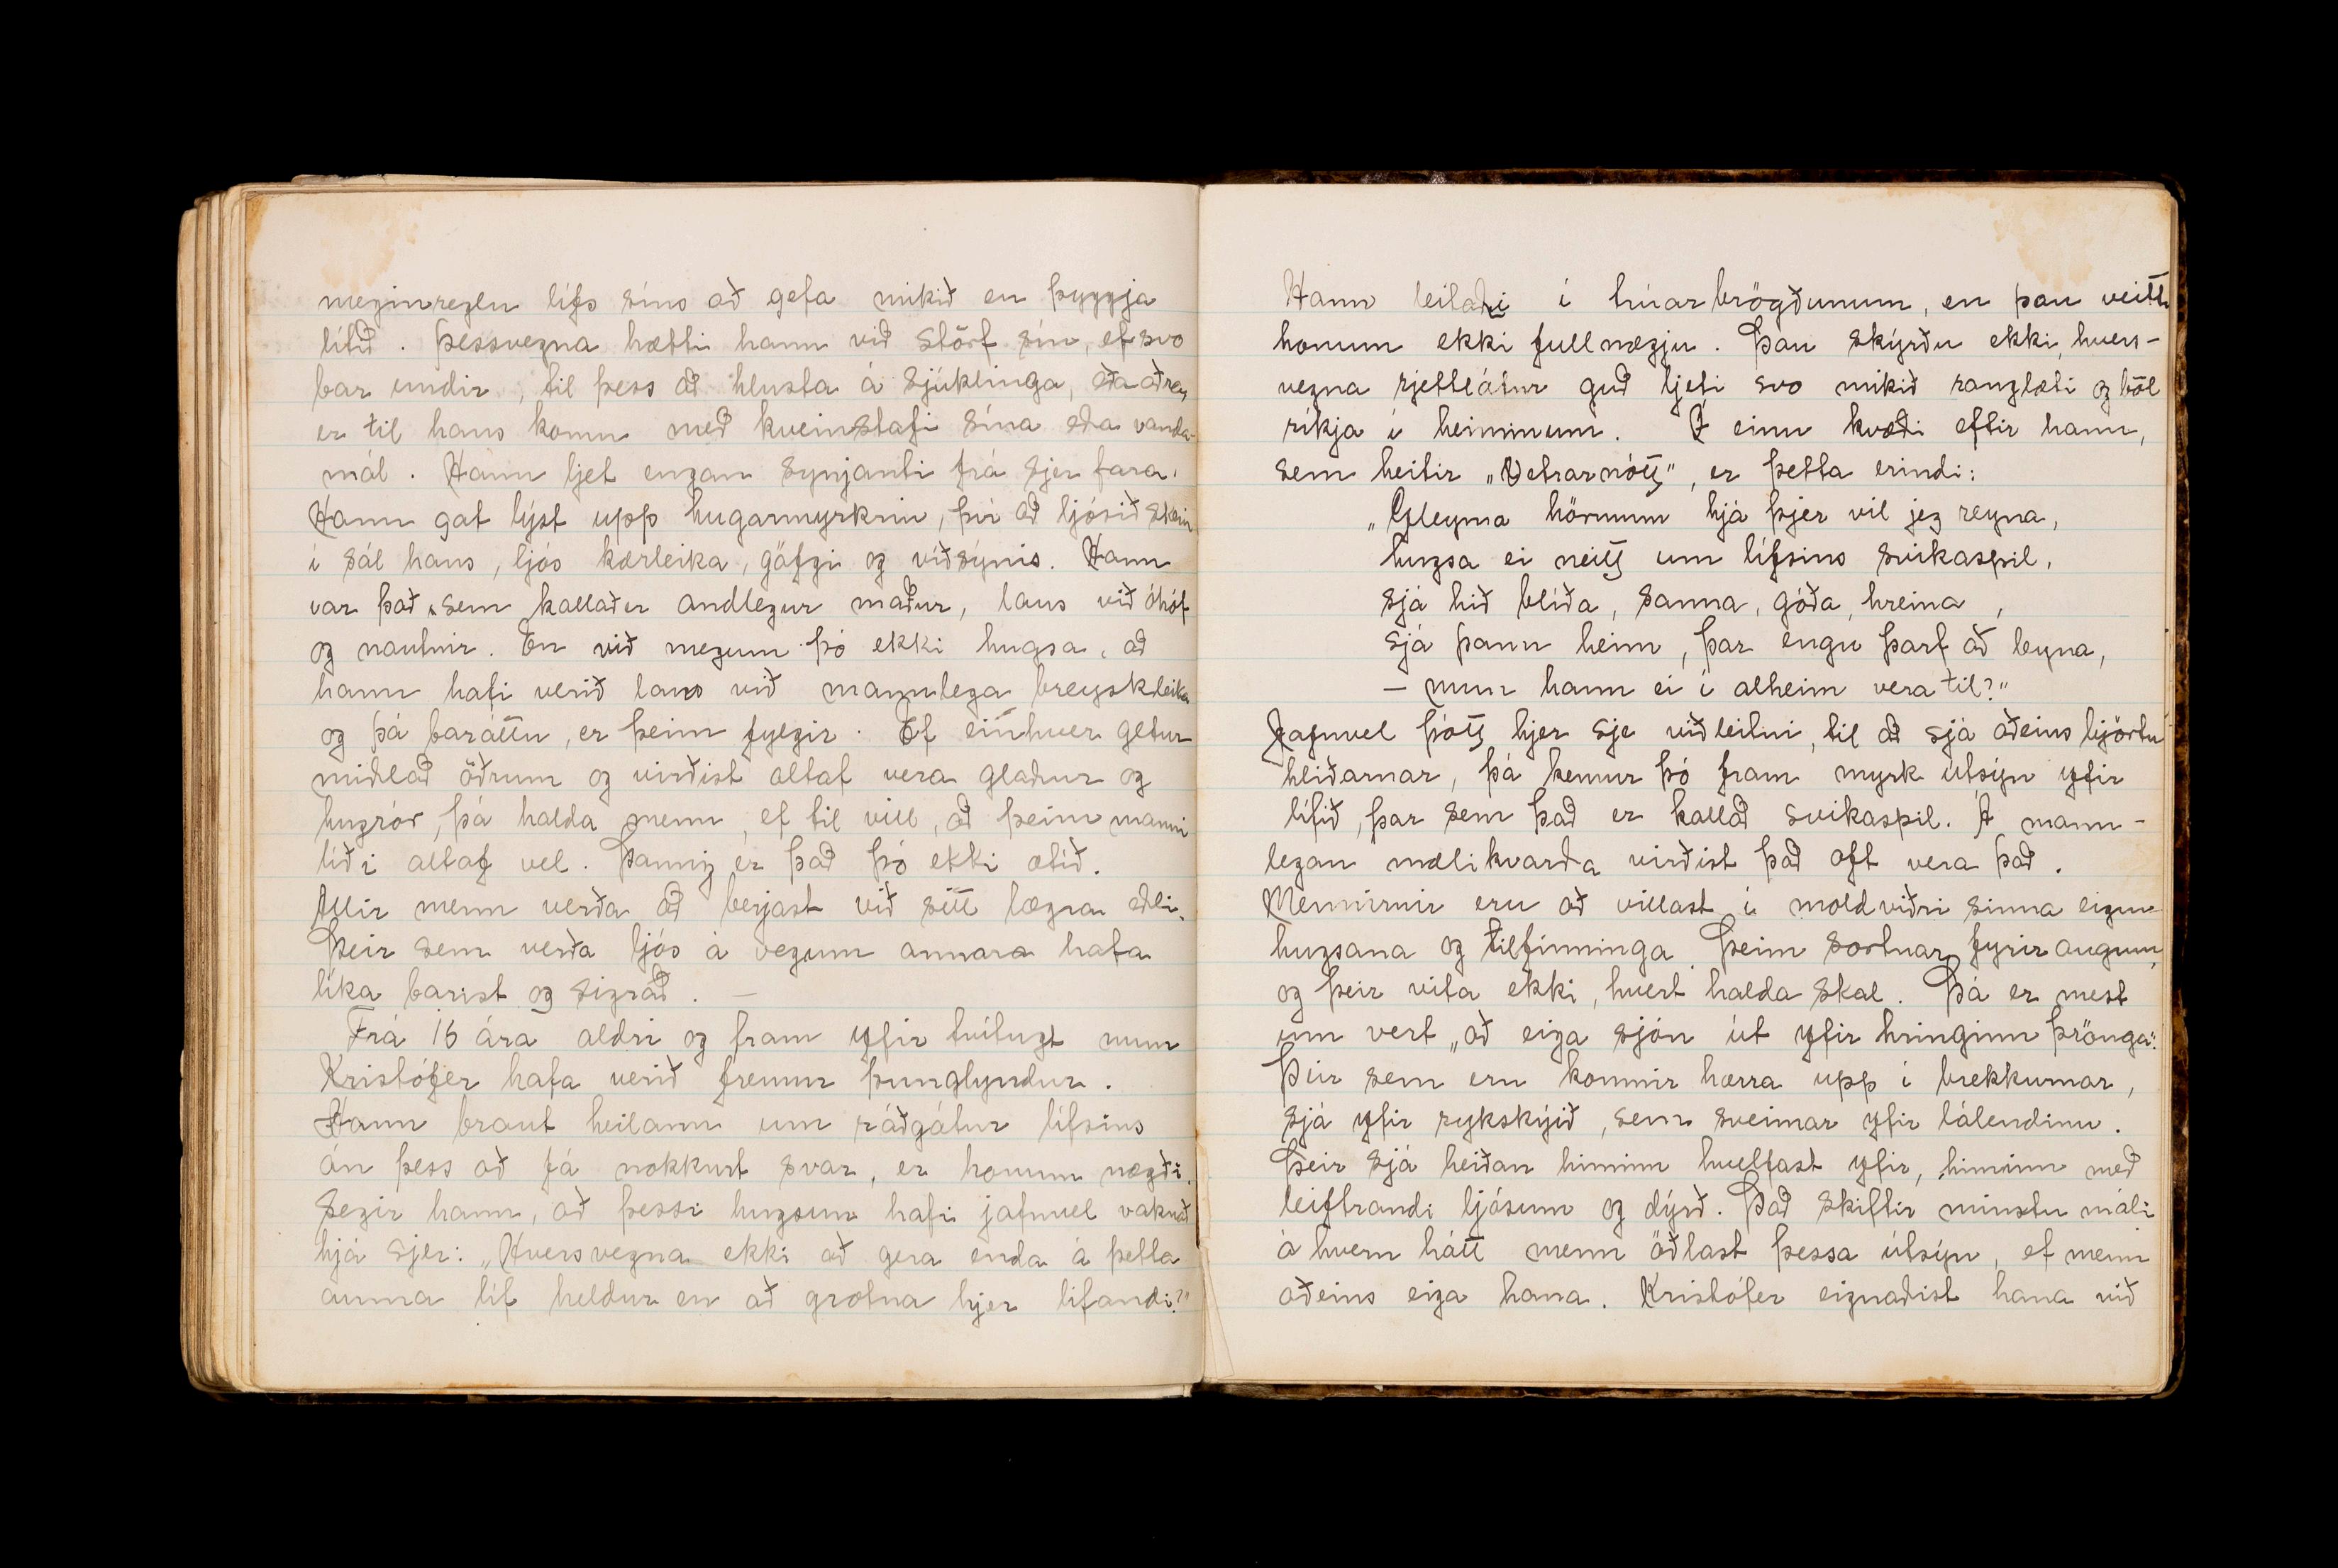 meginreglu lífs síns að gefa mikið en þyggja
lítið. Þessvegna hætti hann við störf sín, ef svo
bar undir, til þess að hlusta á sjúklinga, eða aðra,
er til hans komu með kveinstafi sína eða vanda-
mál. Hann ljet engan synjanti frá sjer fara.
Hann gat lýst upp hugarmyrkrin, því að ljósið skein
í sál hans, ljós kærleika, göfgi og víðsýnis. Hann
var það, sem kallaður andlegur maður, laus við óhóf
og nautnir. En við megum þó ekki hugsa, að
hann hafi verið laus við mannlega breyskleika
og þá baráttu, er þeim fylgir. Ef einhver getur
miðlað öðrum og virðist altaf vera glaður og
hugrór, þá halda menn, ef til vill, að þeim manni
líði altaf vel. Þannig er það þó ekki ætíð.
Allir menn verða að berjast við sitt lægra eðli.
Þeir sem verða ljós á vegum annara hafa
líka barist og sigrað. —
Frá 16 ára aldri og fram yfir tvítugt mun
Kristófer hafa verið fremur þunglyndur.
Hann braut heilann um ráðgátur lífsins
án þess að fá nokkurt svar, er honum nægði.
Segir hann, að þessi hugsun hafi jafnvel vaknað
hjá sjer: „Hversvegna ekki að gera enda á þetta
auma líf heldur en að grotna hjer lifandi?"
Hann leitaði í trúarbrögðunum, en þau veittu
honum ekki fullnægju. Þau skýrðu ekki, hvers-
vegna rjettlátur guð ljeti svo mikið ranglæti og böl
ríkja í heiminum. Í einu kvæði eftir hann,
sem heitir „Vetrarnótt", er þetta erindi:
„Gleyma hörmum hjá þjer vil jeg reyna,
hugsa ei neitt um lífsins svikaspil,
sjá hið blíða, sanna, góða, hreina,
sjá þann heim, þar engu þarf að leyna,
— mun hann ei í alheim vera til?"
Jafnvel þótt hjer sje viðleitni, til að sjá aðeins björtu
hliðarnar, þá kemur þó fram myrk útsýn yfir
lífið, þar sem það er kallað svikaspil. Á mann-
legan mælikvarða virðist það oft vera það.
Mennirnir eru að villast í moldviðri sinna eigin
hugsana og tilfinninga. Þeim sortnar fyrir augum,
og þeir vita ekki, hvert halda skal. Þá er mest
um vert „að eiga sjón út yfir hringinn þrönga".
Þeir sem eru komnir hærra upp í brekkurnar,
sjá yfir rykskýið, sem sveimar yfir láglendinu.
Þeir sjá heiðan himinn hvelfast yfir, himinn með
leiftrandi ljósum og dýrð. Það skiftir minstu máli
á hvern hátt menn öðlast þessa útsýn, ef menn
aðeins eiga hana. Kristófer eignaðist hana við